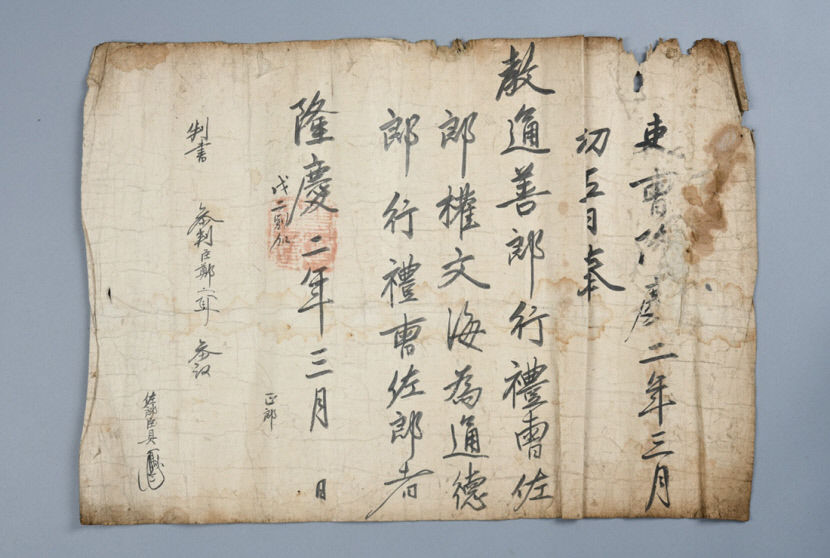 吏曹隆慶二年三月
初五日奉
敎通善郎行禮曹佐
郎權文海為通德
郎行禮曹佐郎者
隆慶二年三月 日
戊二別加
正郎
判書 參判臣鄭 參議
佐郎臣具